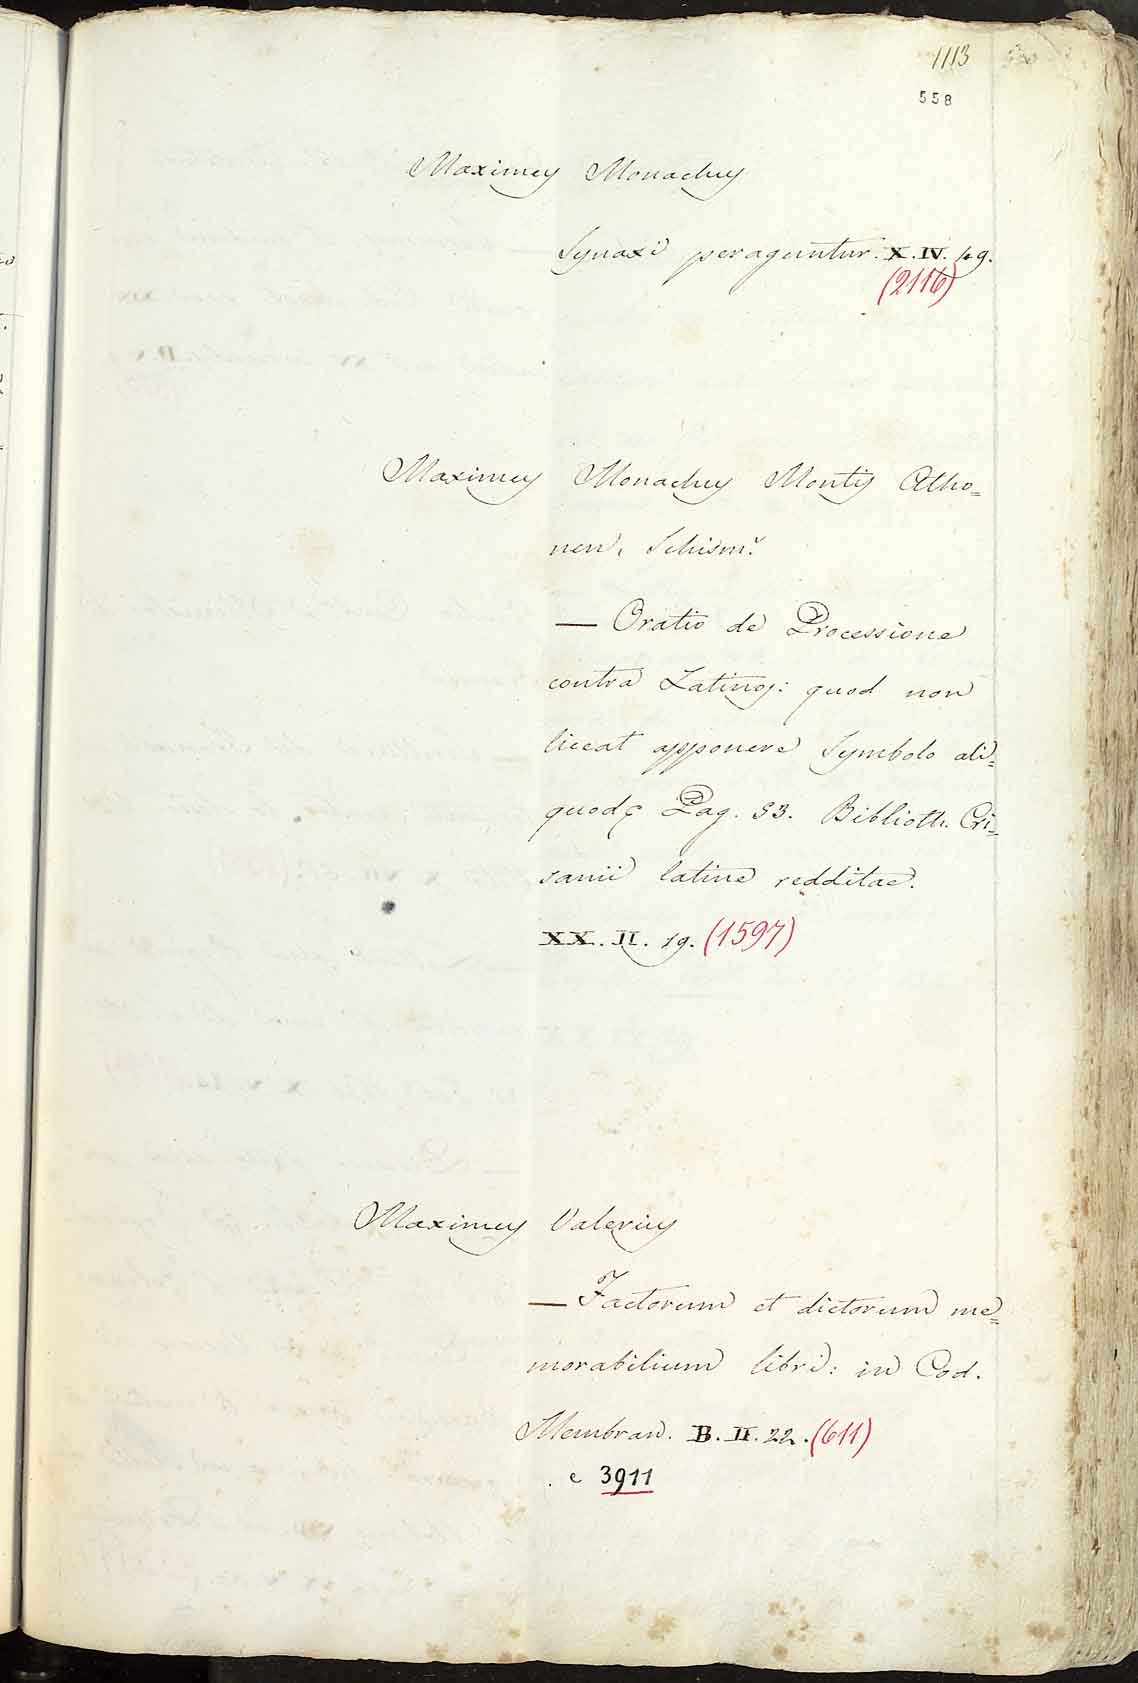 1113
558
Maximus Monachus
Synaxi peraguntur. X. IV. 49.
(2116)
Maximus Monachus Montis Atho=
nen, Schism.
— Oratio de Processione
contra Latinos: quod non
liceat apponere Symbolo ali=
quod &c Pag. 83. Biblioth. Cri=
sanii latine redditae.
XX. II. 19. (1597)
Maximus Valerius
— Factorum et dictorum me=
morabilium libri: in Cod.
Membran. B. II. 22. (611)
e 3911